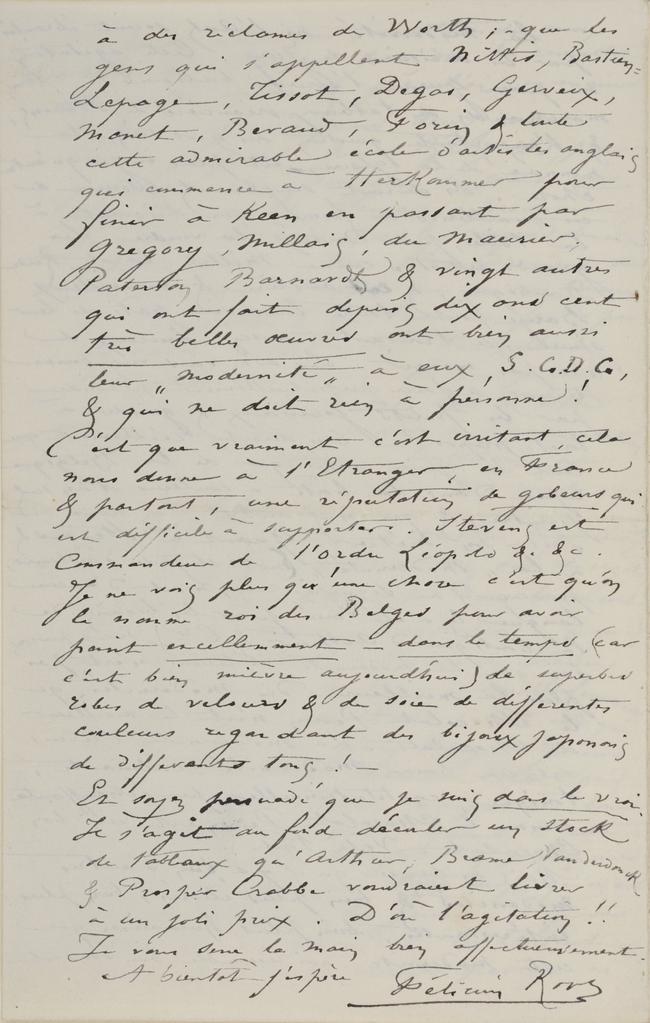 à des réclames de Worth ; - que les
gens qui s'appellent Nittis, Bastien-
Lepage, Tissot, Degas, Gerveix,
Monet, Beraud, Forin & toute
cette admirable école d'artistes anglais
qui commence à Herkommer pour
finir à Keen en passant par
Gregory, Millais, du Maurier,
Paterson Barnardt & vingt autres
qui ont fait depuis dix ans cent
très belles œuvres ont bien aussi
leur „ modernité „ à eux, S.G.D.G,
& qui ne doit rien à personne !
C'est que vraiment c'est irritant, cela
nous donne à l'Etranger, en France
& partout, une réputation de gobeurs qui
est difficile à supporter. Stevens est
Commandeur de l'Ordre Léopold & &c.
Je ne vois plus qu'une chose c'est qu'on
le nomme roi des Belges pour avoir
peint excellemment – dans le temps (car
c'est bien mièvre aujourd'hui) de superbes
robes de velours & de soie de différentes
couleurs regardant des bijoux japonais
de différents tons ! –
Et soyez persuadé que je suis dans le vrai.
Il s'agit au fond d'éculer un stock
de tableaux qu'Arthur, Brame Vanderdonck
& Prosper Crabbe voudraient livrer
à un joli prix. D'où l'agitation !!
Je vous serre la main bien affectueusement.
A bientôt j'espère
Félicien Rops